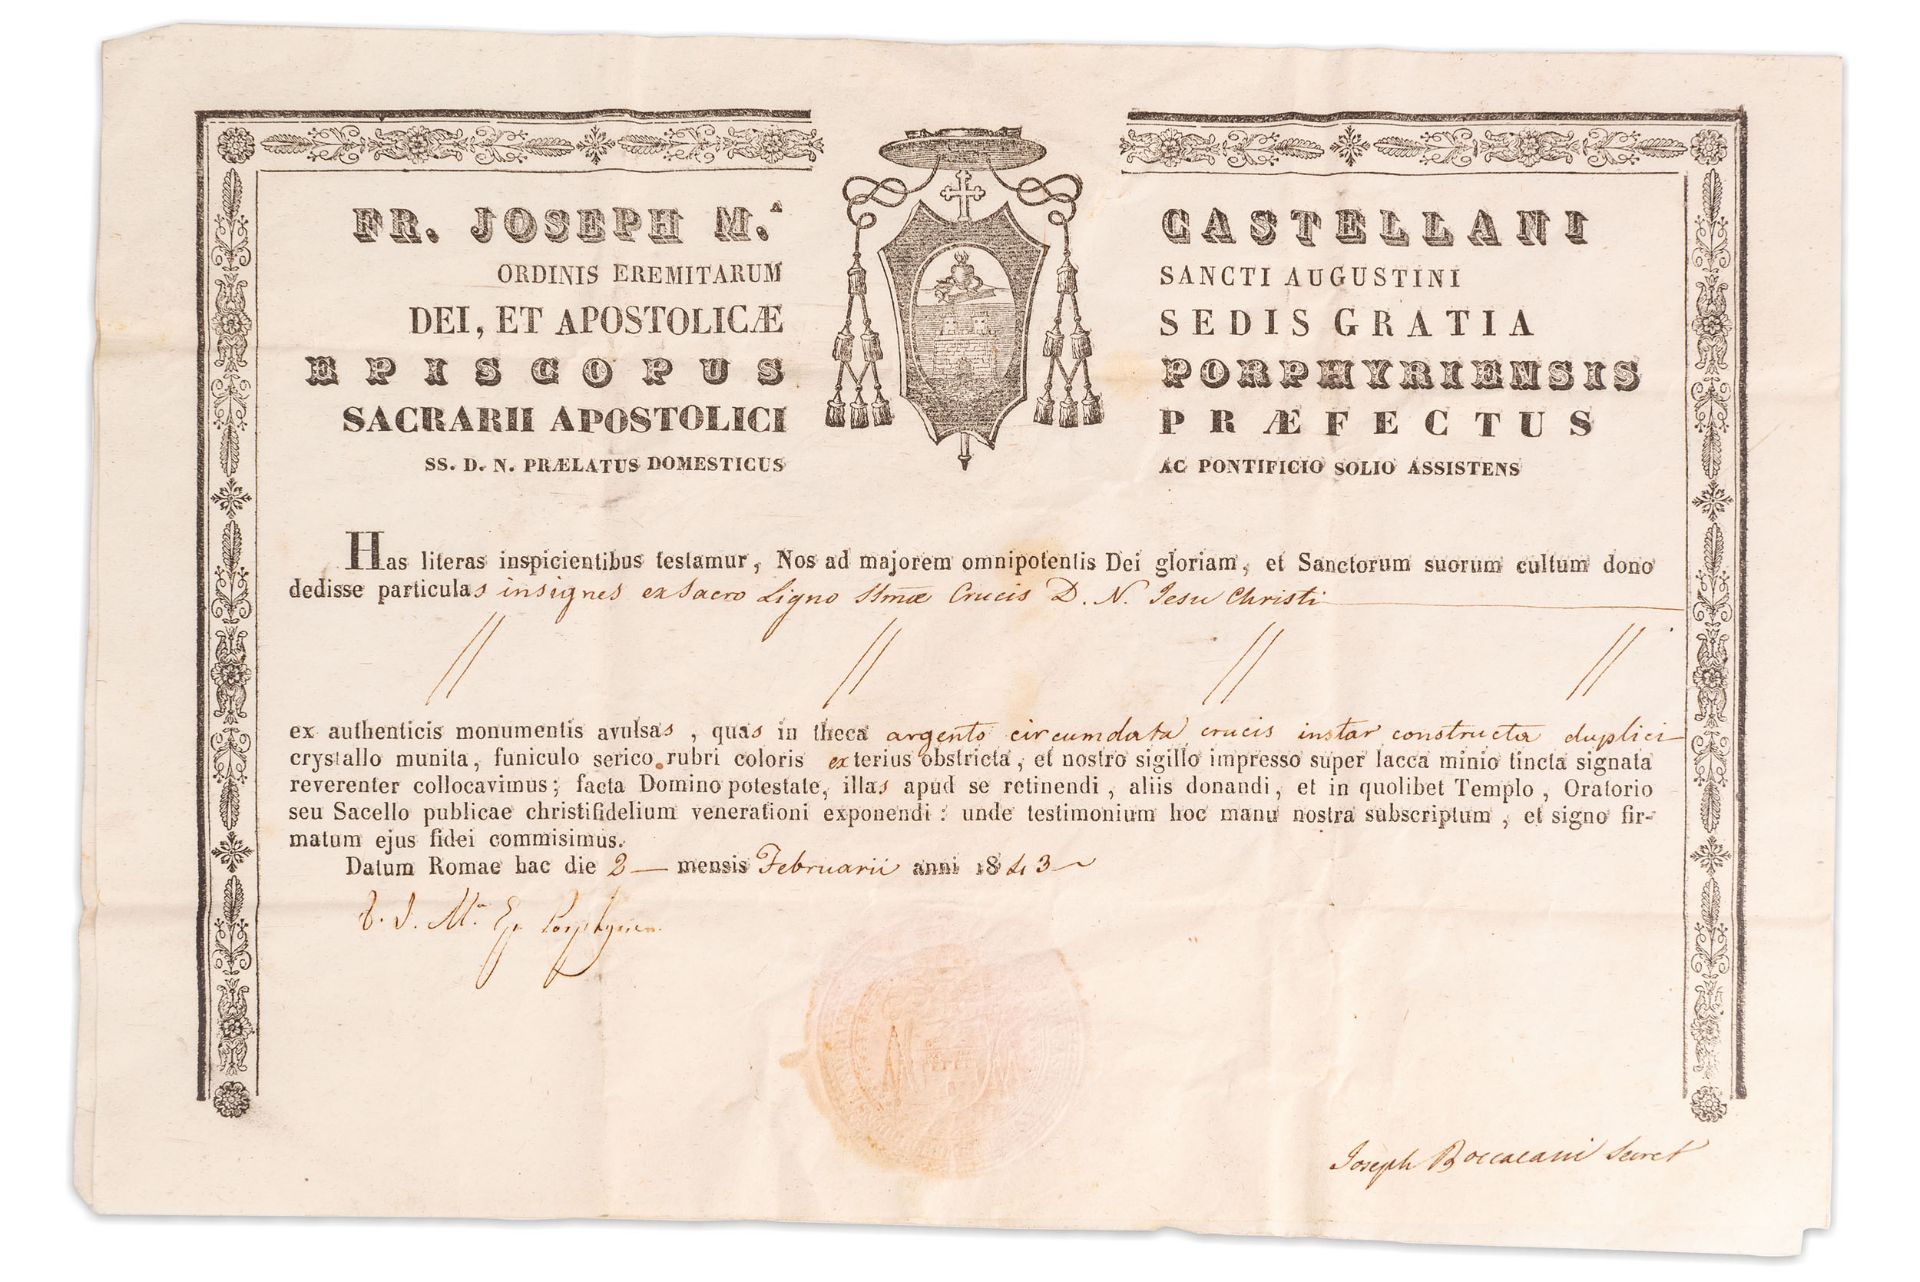 FR. JOSEPH M.ᴬ CASTELLANI
ORDINIS EREMITARUM SANCTI AUGUSTINI
DEI, ET APOSTOLICÆ SEDIS GRATIA
EPISCOPUS PORPHYRIENSIS
SACRARII APOSTOLICI PRÆFECTUS
SS. D. N. PRÆLATUS DOMESTICUS AC PONTIFICIO SOLIO ASSISTENS
Has literas inspicientibus testamur, Nos ad majorem omnipotentis Dei gloriam, et Sanctorum suorum cultum dono
dedisse particulas insignes ex Sacro Ligno SSmæ Crucis D. N. Jesu Christi
// // // //
ex authenticis monumentis avulsas, quas in theca argento circumdata crucis instar constructa duplici
crystallo munita, funiculo serico rubri coloris exterius obstricta, et nostro sigillo impresso super lacca minio tincta signata
reverenter collocavimus; facta Domino potestate, illas apud se retinendi, aliis donandi, et in quolibet Templo, Oratorio
seu Sacello publicae christifidelium venerationi exponendi: unde testimonium hoc manu nostra subscriptum, et signo fir-
matum ejus fidei commisimus.
Datum Romae hac die 2 — mensis Februarii anni 1843
F. J. Mª Ep. Porphyrien.
Joseph Boccacani Secret